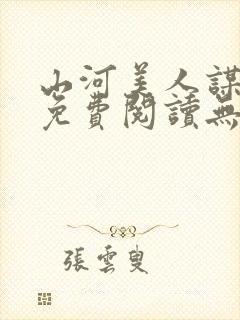 山河美人謀
免費閱讀無
張雲叟